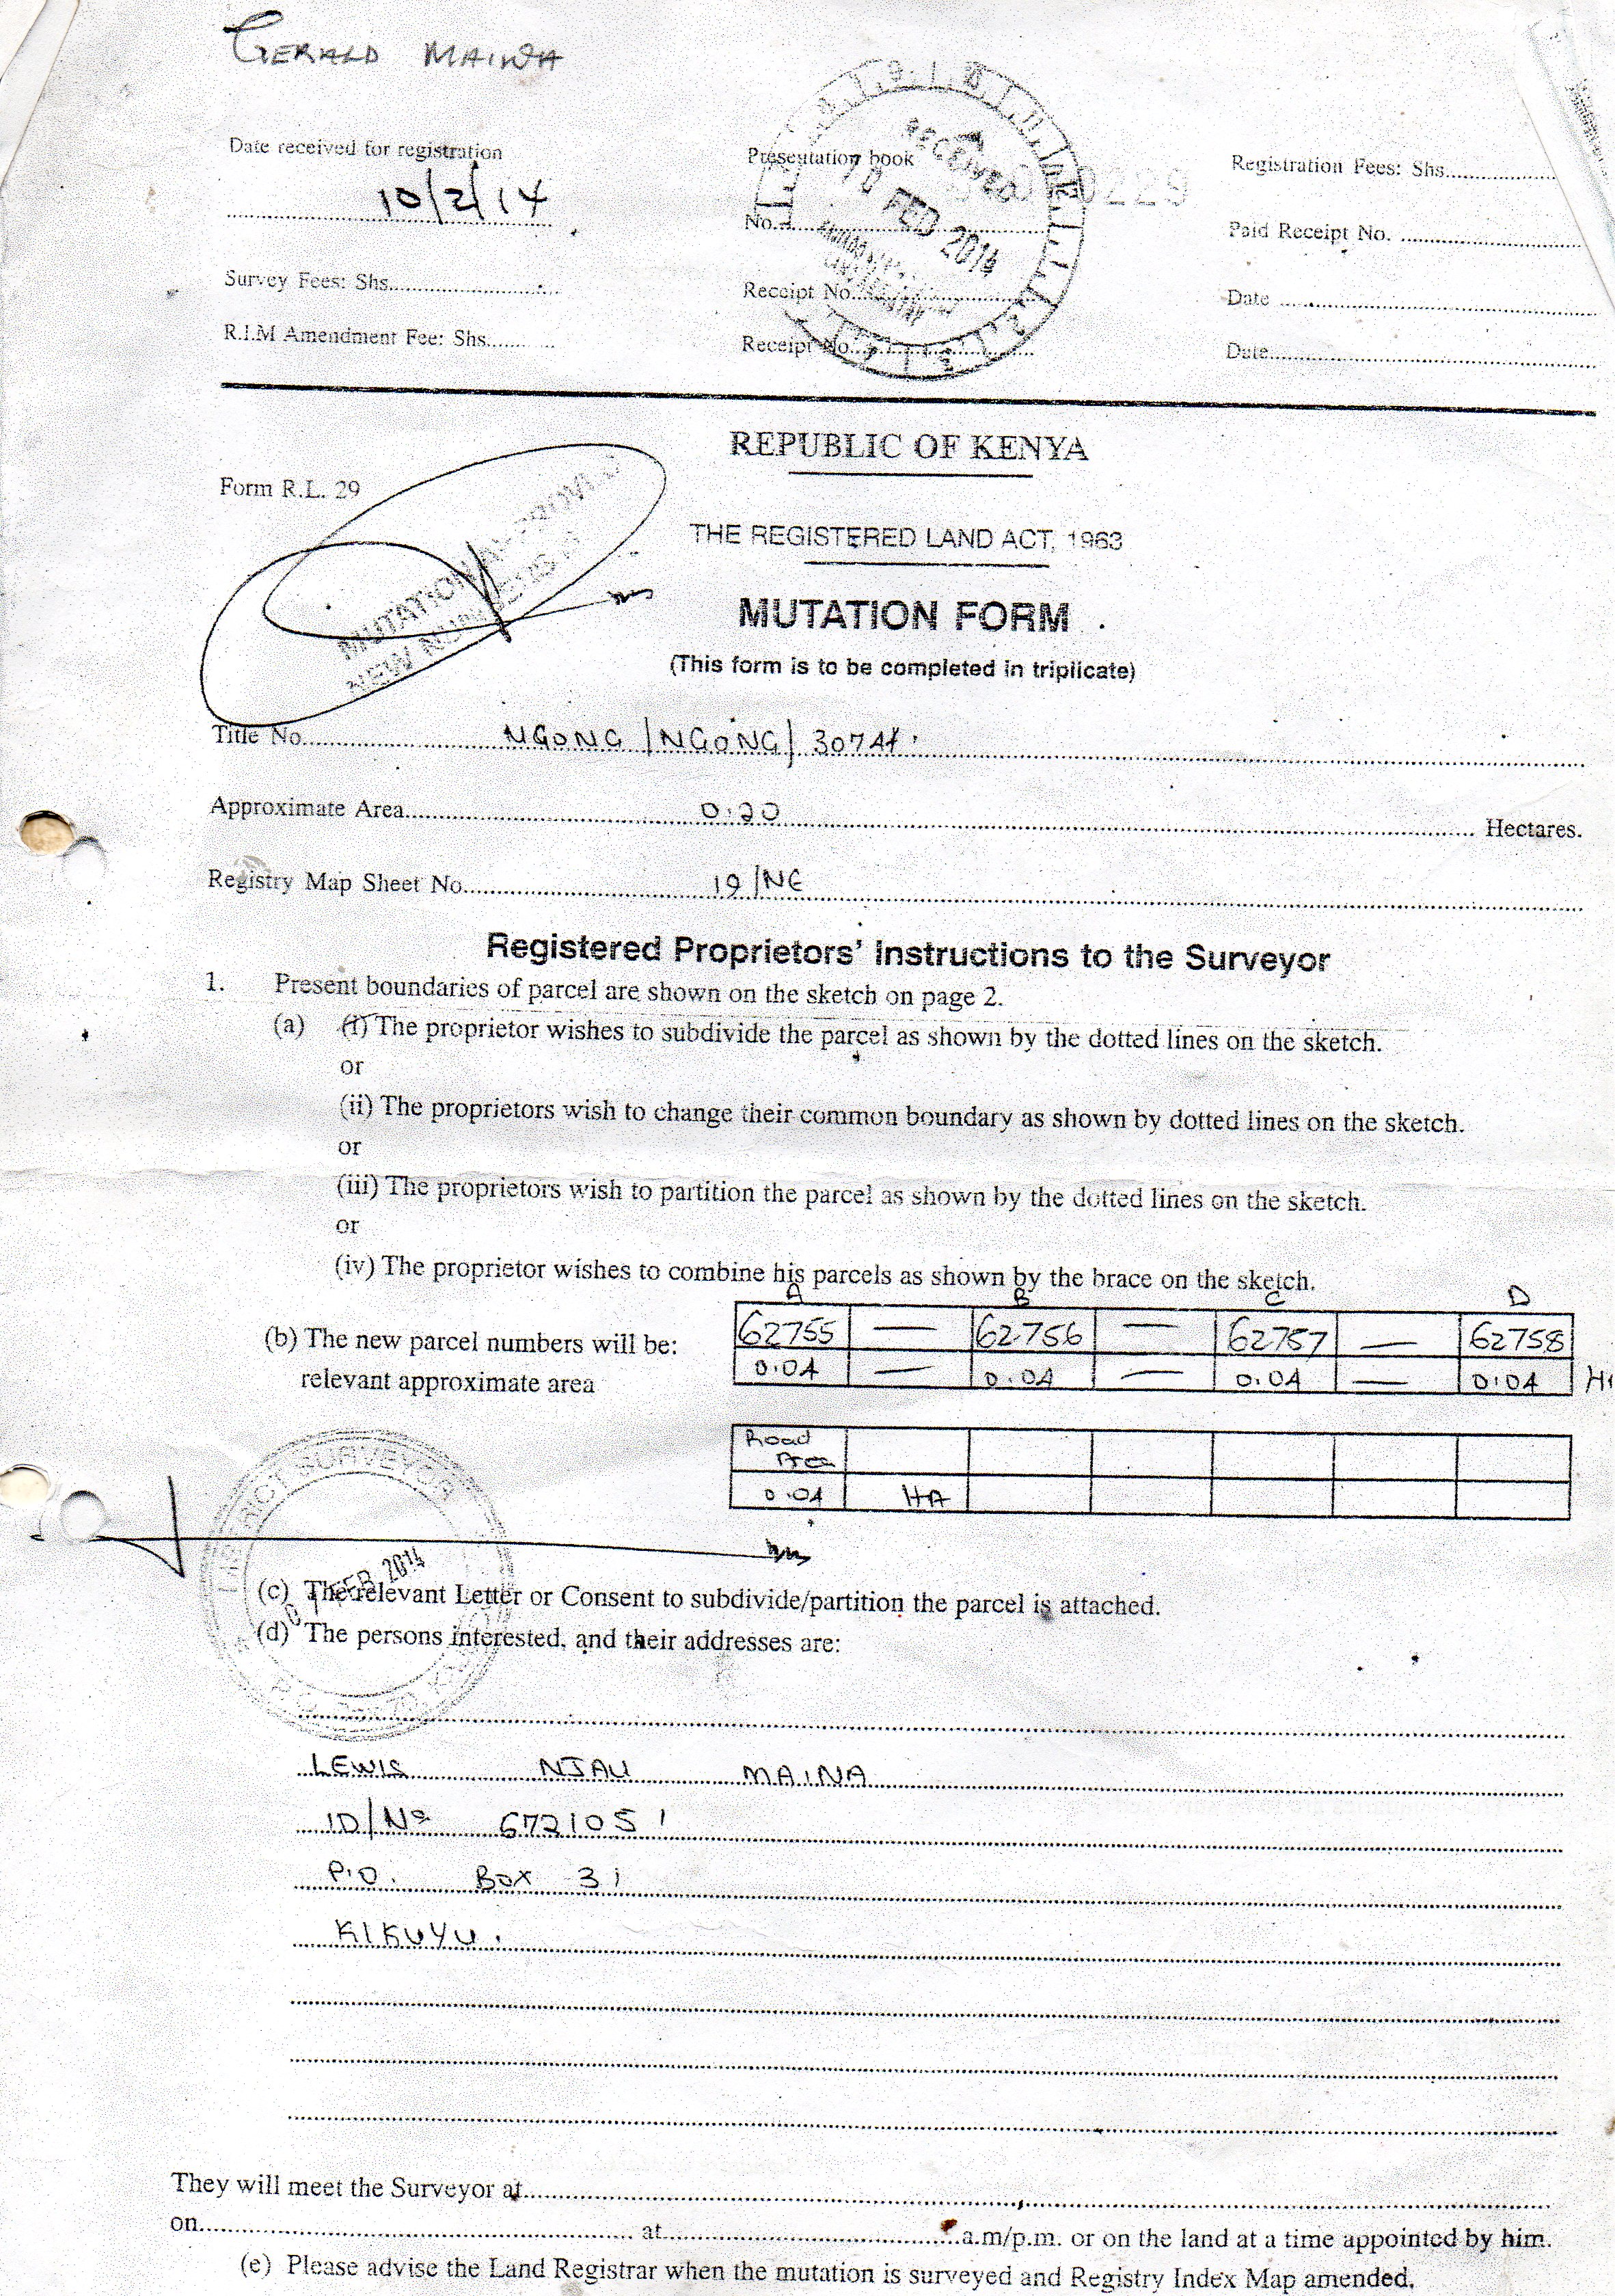 GERALD MAINA
Date received for registration
10/2/14
Presentation book
No.
Registration Fees: Shs
Paid Receipt No.
RECEIVED
10 FEB 2014
0229
Survey Fees: Shs
Receipt No.
Date
R.I.M Amendment Fee: Shs
Receipt No.
Date
REPUBLIC OF KENYA
Form R.L. 29
THE REGISTERED LAND ACT, 1963
MUTATION FORM
(This form is to be completed in triplicate)
MUTATION APPROVED
NEW NUMBERS
Title No. NGONG/NGONG/30744
Approximate Area 0.20 Hectares.
Registry Map Sheet No. 19/NE
Registered Proprietors' Instructions to the Surveyor
1. Present boundaries of parcel are shown on the sketch on page 2.
(a) (i) The proprietor wishes to subdivide the parcel as shown by the dotted lines on the sketch.
or
(ii) The proprietors wish to change their common boundary as shown by dotted lines on the sketch.
or
(iii) The proprietors wish to partition the parcel as shown by the dotted lines on the sketch.
or
(iv) The proprietor wishes to combine his parcels as shown by the brace on the sketch.
A B C D
(b) The new parcel numbers will be: 62755 — 62756 — 62757 — 62758
relevant approximate area 0.04 — 0.04 — 0.04 — 0.04
Road
Area
0.04 HA
DISTRICT SURVEYOR
FEB 2014
(c) The relevant Letter or Consent to subdivide/partition the parcel is attached.
(d) The persons interested, and their addresses are:
LEWIS NJAU MAINA
ID/No 6721051
P.O. BOX 31
KIKUYU.
They will meet the Surveyor at
on at a.m/p.m. or on the land at a time appointed by him.
(e) Please advise the Land Registrar when the mutation is surveyed and Registry Index Map amended.